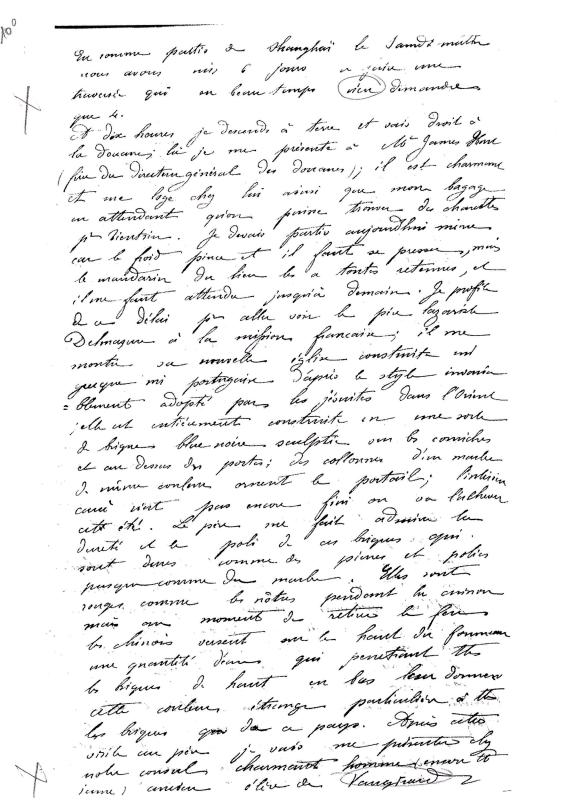 10°
En somme partis de Shanghaï le Samdi matin
nous avons mis 6 jours a faire une
traversée qui en beau temps n'en demande
que 4.
A dix heures je descends à terre et vais droit à
la douane; là je me présente à Mr James Hart
(fils du Directeur général des douanes); il est charmant
et me loge chez lui ainsi que mon bagage
en attendant qu'on puisse trouver des charettes
pr Tientsin. Je devais partir aujourd'hui même
car le froid pince et il faut se presser, mais
le mandarin du lieu les a toutes retenues, et
il me faut attendre jusqu'à demain. Je profite
de ce délai pr aller voir le père lazariste
Delmasure à la mission francaise; il me
montre sa nouvelle église construite mi
grecque mi portugaise d'après le style invaria
=blement adopté par les jésuites dans l'Orient
; elle est entièrement construite en une sorte
de briques bleu noire sculptée sur les corniches
et au dessus des portes; des collonnes d'un marbre
de même couleur ornent le portail; l'intérieur
carré n'est pas encore fini on va l'achever
cette été. Le père me fait admirer la
dureté et le poli de ces briques qui
sont dures comme des pierres et polies
presque comme du marbre. Elles sont
rouges comme les nôtres pendant la cuisson
mais au moment de retirer le feu
les chinois versent sur le haut du fourneau
une quantité d'eau qui penetrant ttes
les briques de haut en bas leur donnent
cette couleur étrange particulière à ttes
les briques de ce pays. Après cette
visite au père je vais me présenter chez
notre consul charmant homme (encore tt
jeune) ancien élève de Vaugirard